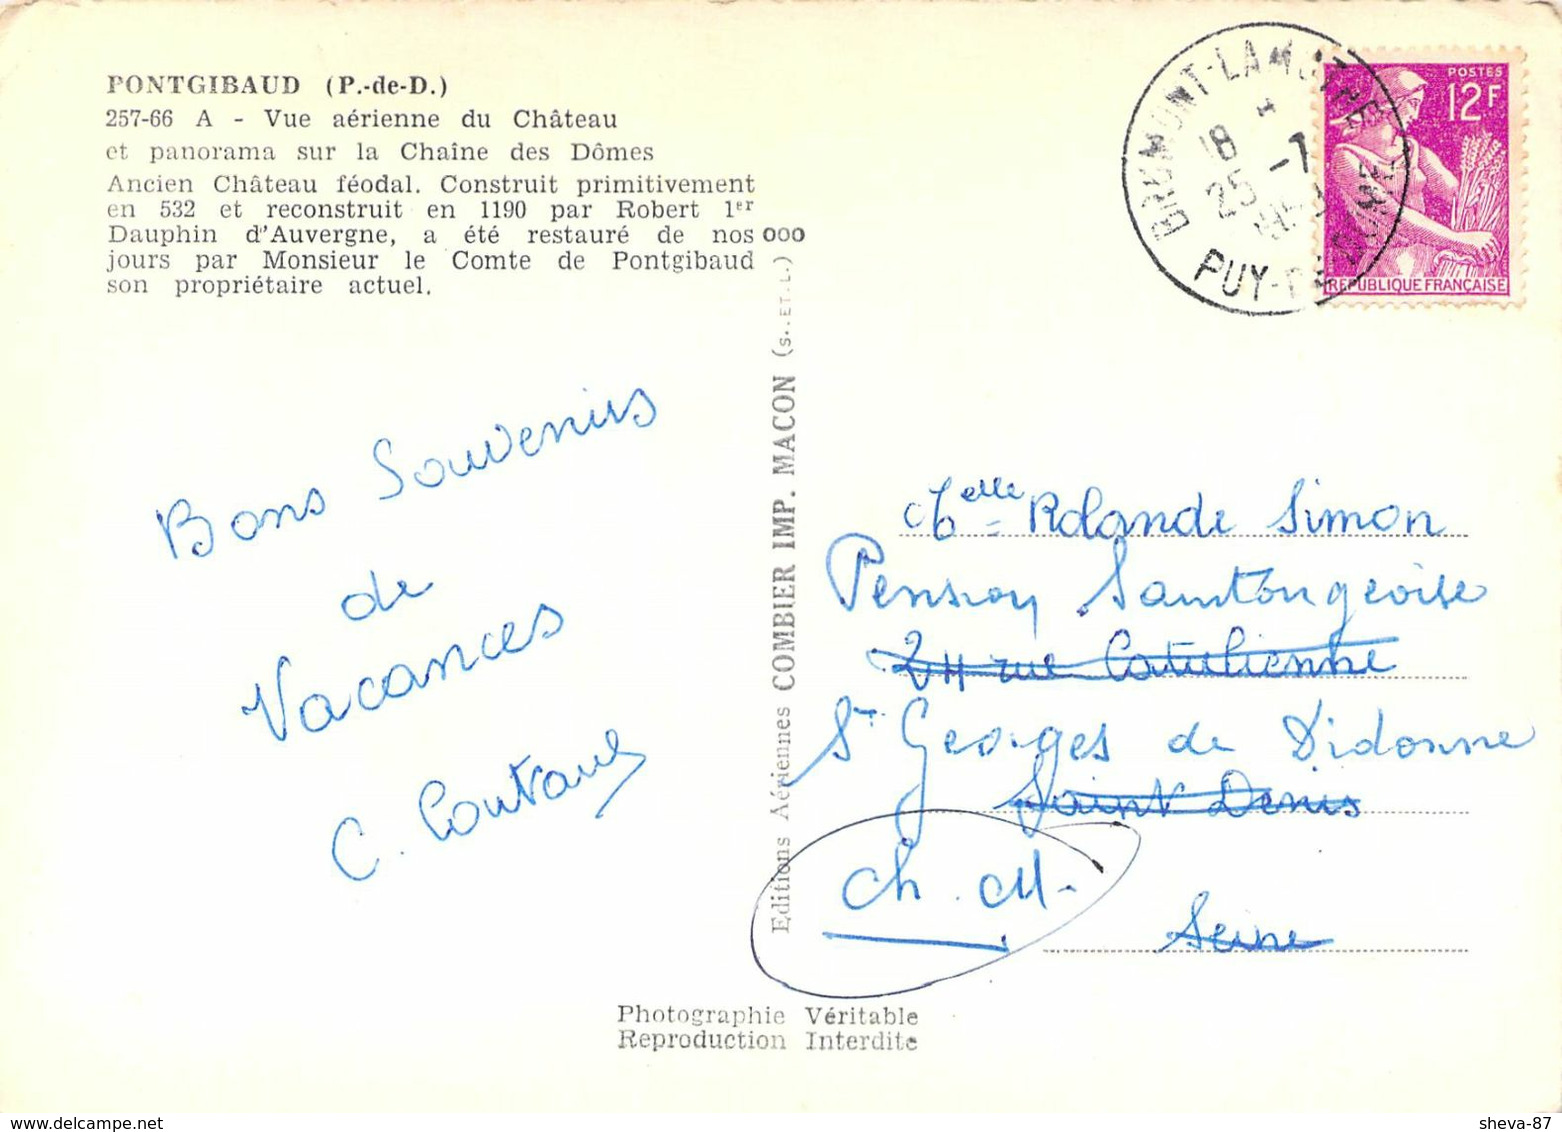 PONTGIBAUD (P.-de-D.)
257-66 A - Vue aérienne du Château
et panorama sur la Chaîne des Dômes
Ancien Château féodal. Construit primitivement
en 532 et reconstruit en 1190 par Robert 1er
Dauphin d'Auvergne, a été restauré de nos
jours par Monsieur le Comte de Pontgibaud
son propriétaire actuel.
Bons Souvenirs
de
Vacances
C.
000
Editions Aériennes COMBIER IMP. MACON (S.-ET.L.)
BROMONT-LAMOTHE
18
25 -7
PUY-DE-DOME
POSTES
12F
REPUBLIQUE FRANÇAISE
Melle Rolande Simon
Pension Saintongeoise
2 rue Catulienne
St Georges de Didonne
Saint Denis
Ch. M.
Seine
Photographie Véritable
Reproduction Interdite
delcampe.net
sheva-87